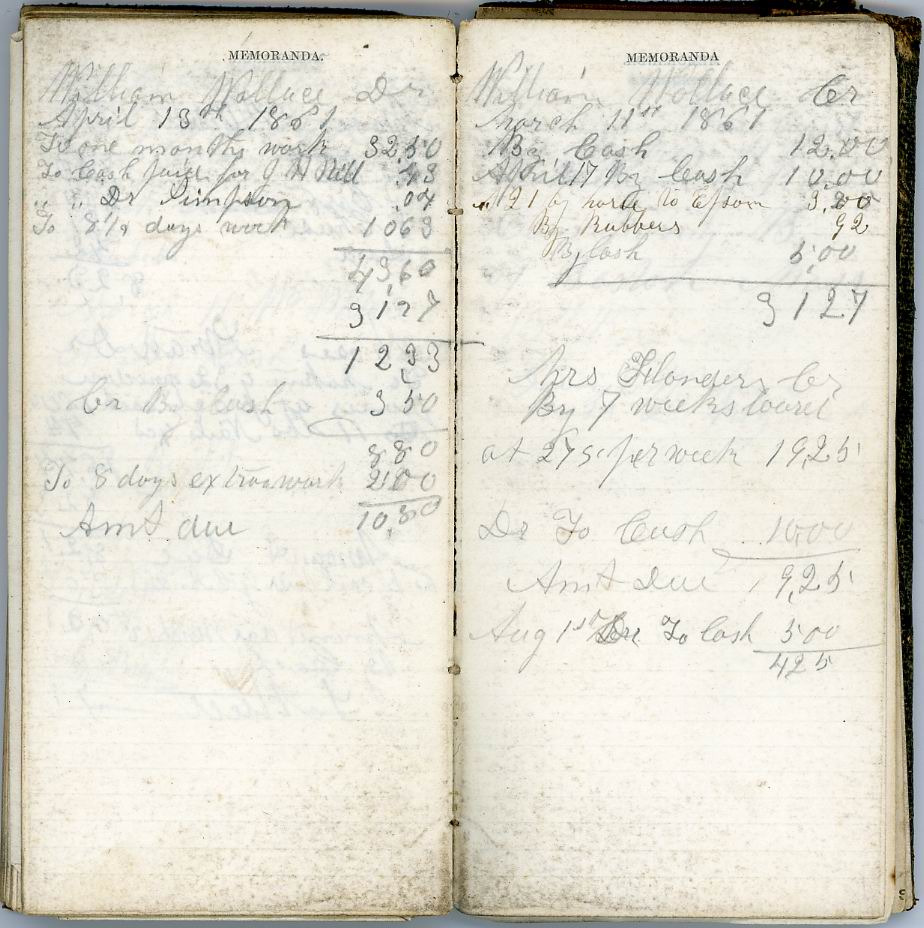 MEMORANDA.
William Wallace Dr
April 13th 1861
To one months work 32.50
To Cash paid for J H Hill .43
" " Dr Simpson .04
To 8 1/2 days work 10 63
43,60
31 27
12 33
Cr By Cash 3 50
8 80
To 8 days extra work 2 00
Amt due 10,80
MEMORANDA
William Wallace Cr
March 11th 1861
By Cash 12.00
April 17 By Cash 10.00
" 21 by horse to Epsom 3.00
By Rubbers 92
By Cash 5,00
31 27
Mrs Flanders Cr
By 7 weeks board
at 275 per week 19,25
Dr To Cash 10.00
Amt Due 9,25
Aug 1st Dr To Cash 5 00
4 25